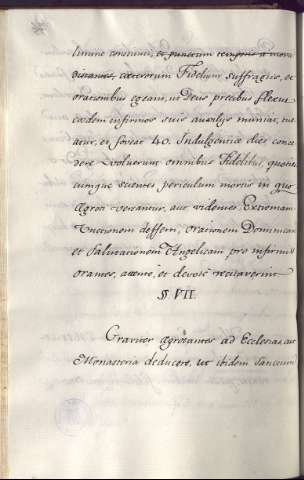 constituti, et punctum temporis a morte
cæterorum Fidelium suffragiis, et
orationibus egeant, ut Deus precibus flexus
eosdem infirmos suis auxiliis muniat, tue
atur, et foveat 40. Indulgentiæ dies conce
dere voluerunt omnibus Fidelibus, quoties
cumque scientes, periculum mortis in quo
Agroti versantur, aut videntes Extremam
Unctionem defferri, Orationem Dominicam
et Salutationem Angelicam pro infirmis
orantes, attente, et devote recitaverint
§ VII.
Graviter ægrotantes ad Ecclesias, aut
Monasteria deducere, ut ibidem Sanctorum